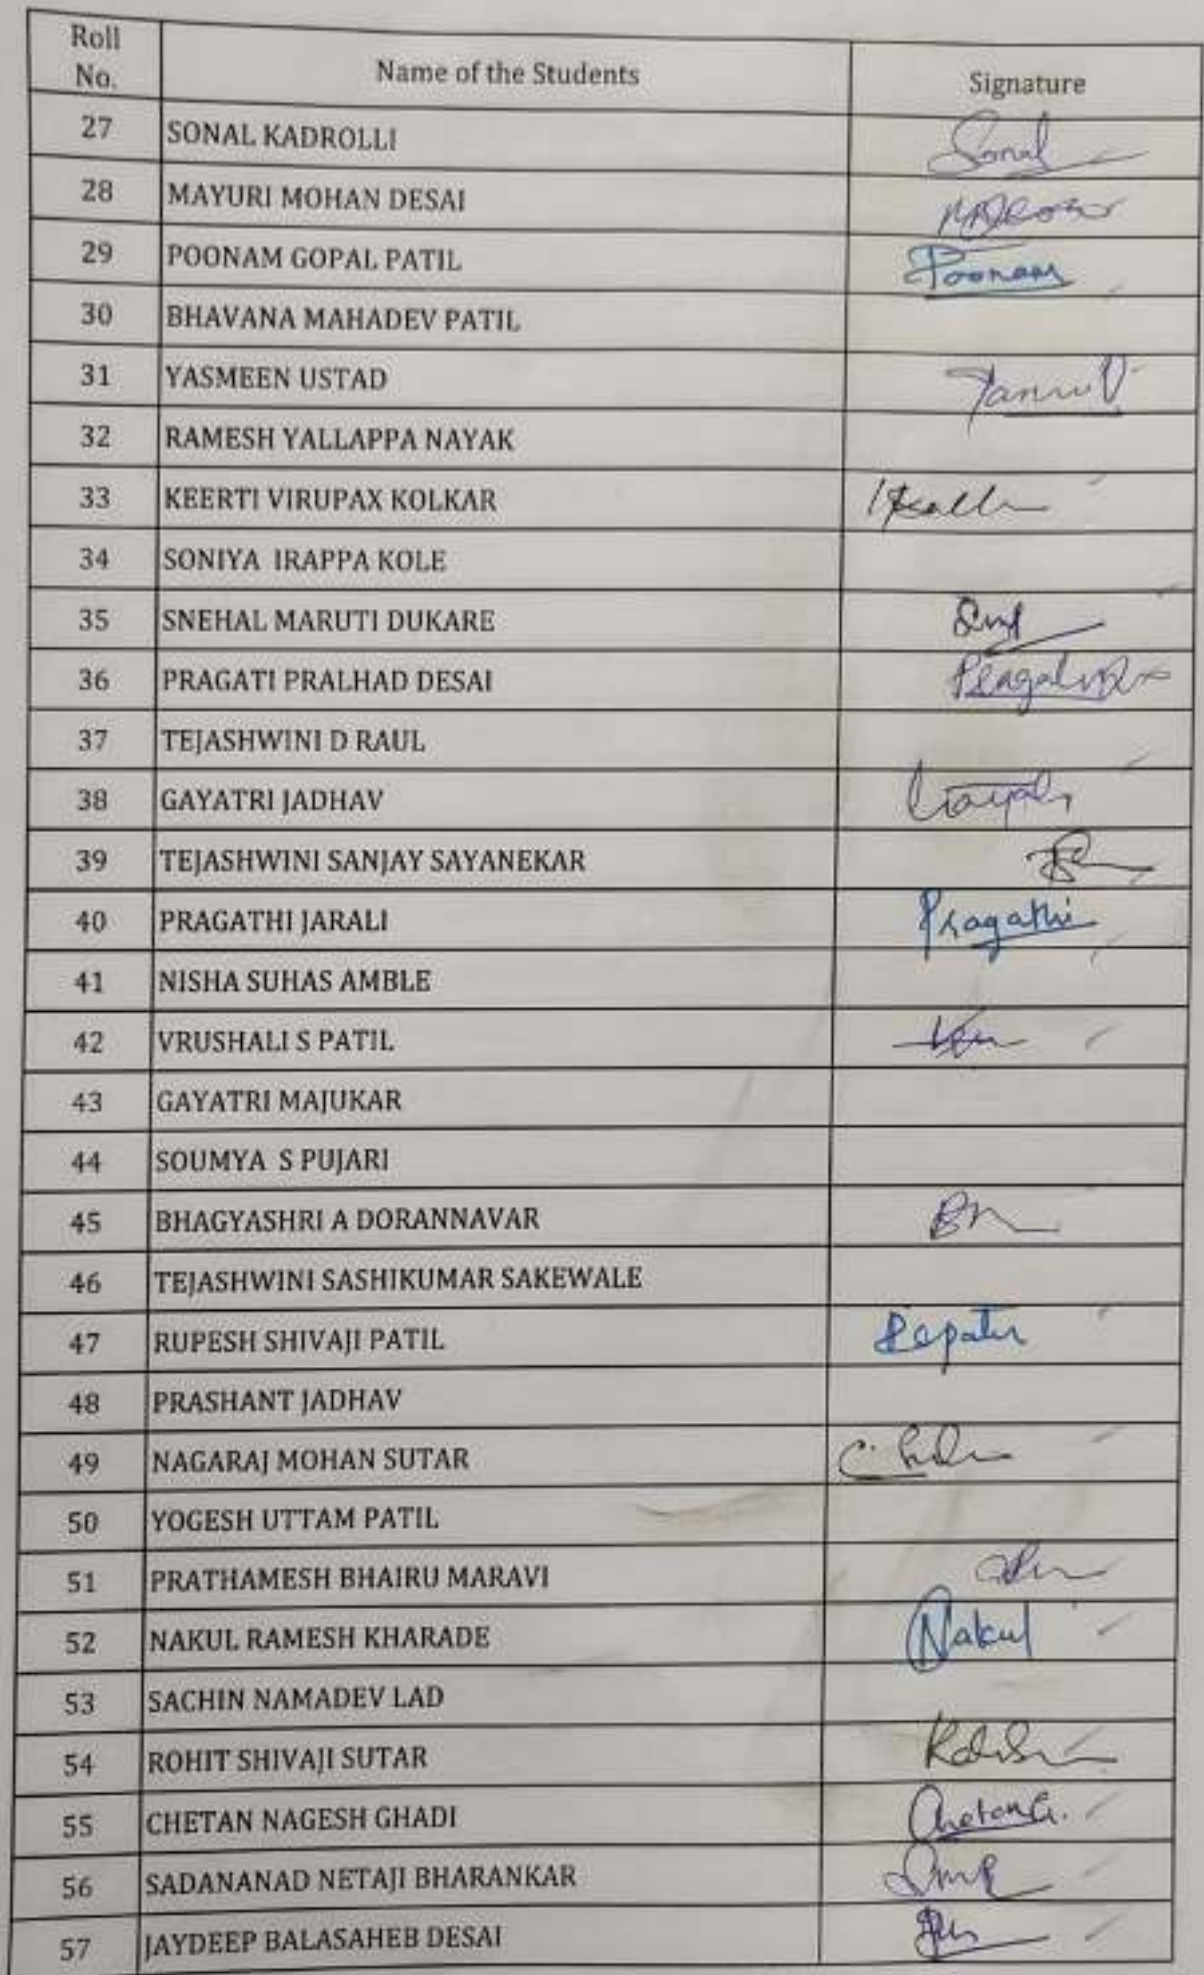 Roll No. Name of the Students Signature
27 SONAL KADROLLI Sonal
28 MAYURI MOHAN DESAI
29 POONAM GOPAL PATIL Poonam
30 BHAVANA MAHADEV PATIL
31 YASMEEN USTAD
32 RAMESH YALLAPPA NAYAK
33 KEERTI VIRUPAX KOLKAR
34 SONIYA IRAPPA KOLE
35 SNEHAL MARUTI DUKARE
36 PRAGATI PRALHAD DESAI
37 TEJASHWINI D RAUL
38 GAYATRI JADHAV
39 TEJASHWINI SANJAY SAYANEKAR
40 PRAGATHI JARALI Pragathi
41 NISHA SUHAS AMBLE
42 VRUSHALI S PATIL
43 GAYATRI MAJUKAR
44 SOUMYA S PUJARI
45 BHAGYASHRI A DORANNAVAR
46 TEJASHWINI SASHIKUMAR SAKEWALE
47 RUPESH SHIVAJI PATIL
48 PRASHANT JADHAV
49 NAGARAJ MOHAN SUTAR
50 YOGESH UTTAM PATIL
51 PRATHAMESH BHAIRU MARAVI
52 NAKUL RAMESH KHARADE Nakul
53 SACHIN NAMADEV LAD
54 ROHIT SHIVAJI SUTAR
55 CHETAN NAGESH GHADI Chetan G.
56 SADANANAD NETAJI BHARANKAR
57 JAYDEEP BALASAHEB DESAI